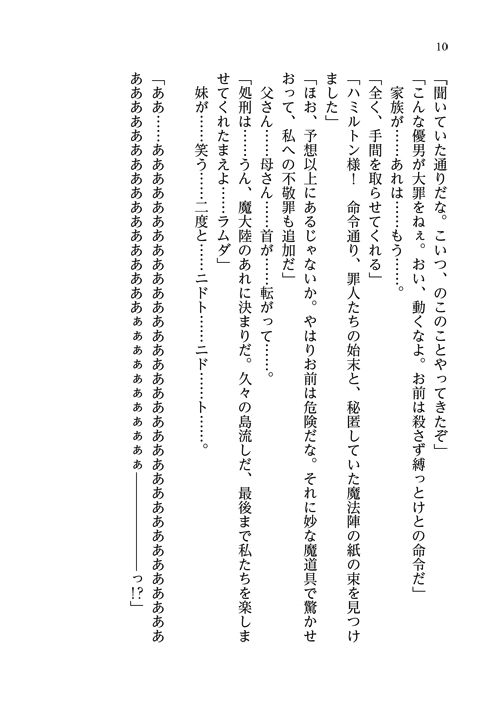 10
「聞いていた通りだな。こいつ、のこのことやってきたぞ」
「こんな優男が大罪をねぇ。おい、動くなよ。お前は殺さず縛っとけとの命令だ」
　家族が……あれは……もう……。
「全く、手間を取らせてくれる」
「ハミルトン様！　命令通り、罪人たちの始末と、秘匿していた魔法陣の紙の束を見つけ
ました」
「ほお、予想以上にあるじゃないか。やはりお前は危険だな。それに妙な魔道具で驚かせ
おって、私への不敬罪も追加だ」
　父さん……母さん……首が……転がって……。
「処刑は……うん、魔大陸のあれに決まりだ。久々の島流しだ、最後まで私たちを楽しま
せてくれたまえよ……ラムダ」
　妹が……笑う……二度と……ニドト……ニド……ト……。
「ああ……ああああああああああああああああああああああああああああああああああ
あああああああああああああああああぁぁぁぁぁぁぁぁぁぁ――――――っ!?」